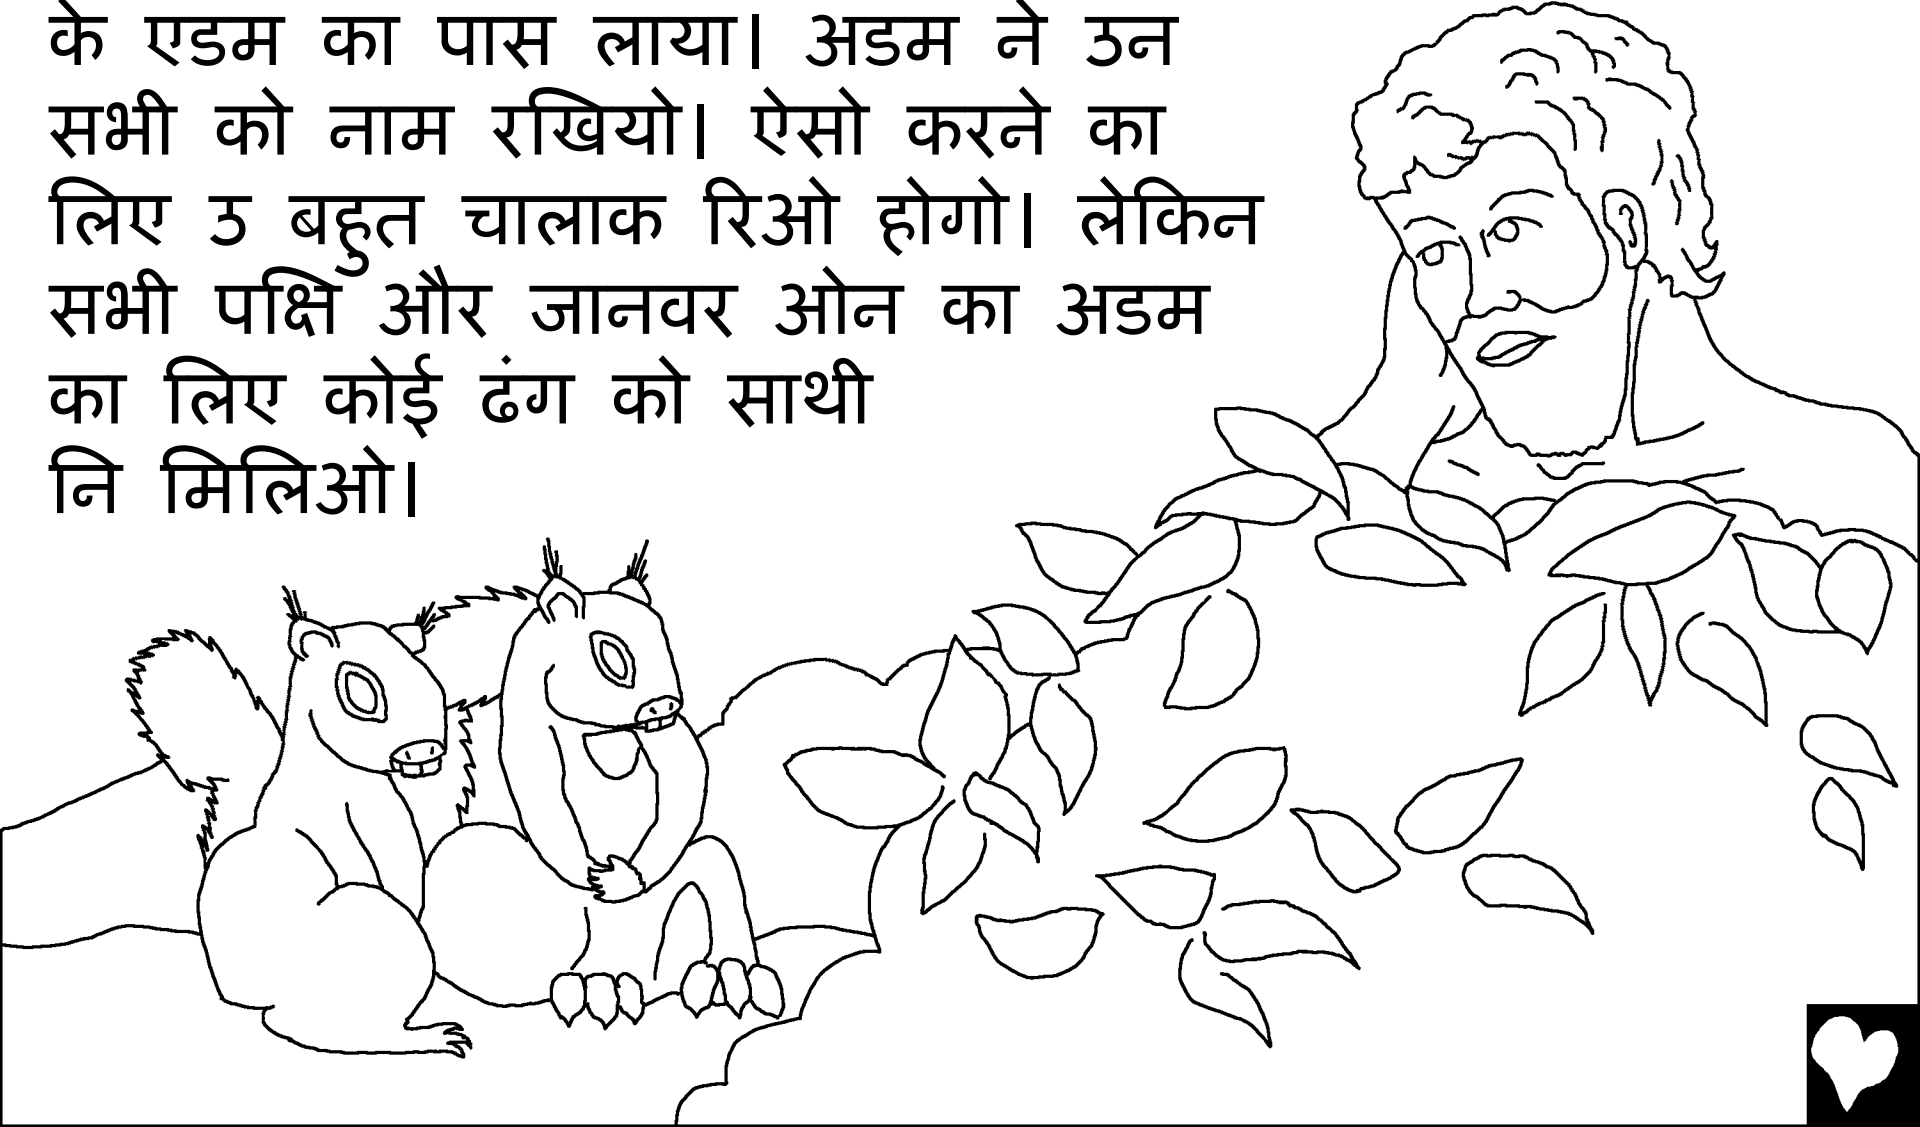 के एडम का पास लाया। अडम ने उन
सभी को नाम रखियो। ऐसो करने का
लिए उ बहुत चालाक रिओ होगो। लेकिन
सभी पक्षि और जानवर ओन का अडम
का लिए कोई ढंग को साथी
नि मिलिओ।